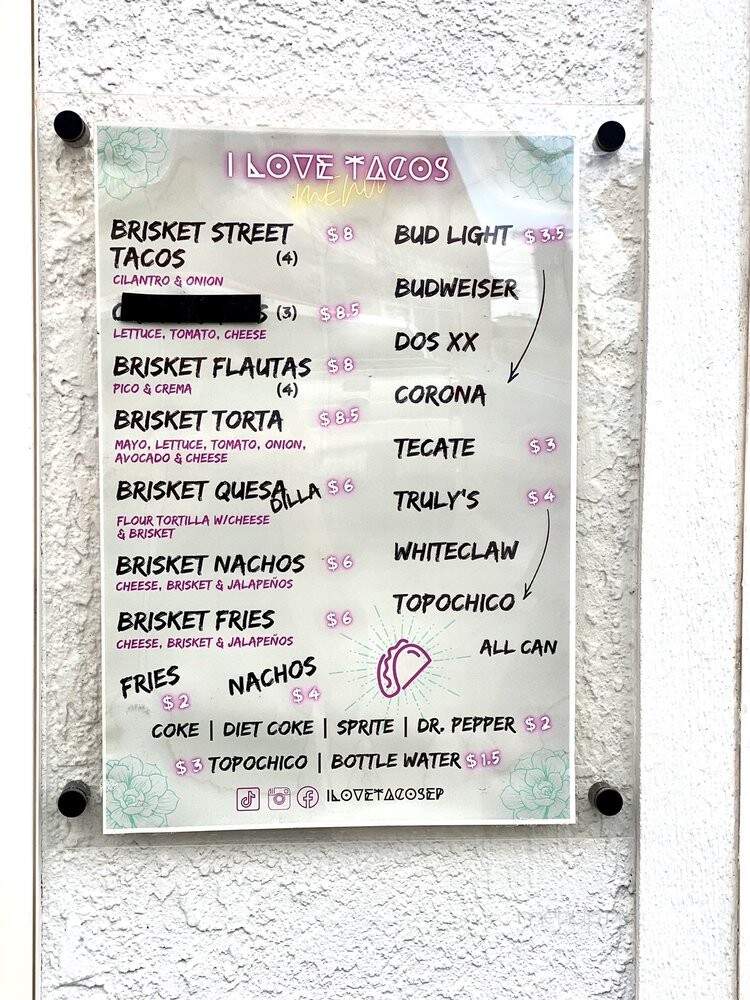 I LOVE TACOS
MENU
BRISKET STREET $8
TACOS (4)
CILANTRO & ONION
(3) $8.5
LETTUCE, TOMATO, CHEESE
BRISKET FLAUTAS $8
PICO & CREMA (4)
BRISKET TORTA $8.5
MAYO, LETTUCE, TOMATO, ONION,
AVOCADO & CHEESE
BRISKET QUESADILLA $6
FLOUR TORTILLA W/CHEESE
& BRISKET
BRISKET NACHOS $6
CHEESE, BRISKET & JALAPEÑOS
BRISKET FRIES $6
CHEESE, BRISKET & JALAPEÑOS
FRIES $2
NACHOS $4
BUD LIGHT $3.5
BUDWEISER
DOS XX
CORONA
TECATE $3
TRULY'S $4
WHITECLAW
TOPOCHICO
ALL CAN
COKE | DIET COKE | SPRITE | DR. PEPPER $2
$3 TOPOCHICO | BOTTLE WATER $1.5
ILOVETACOSEP